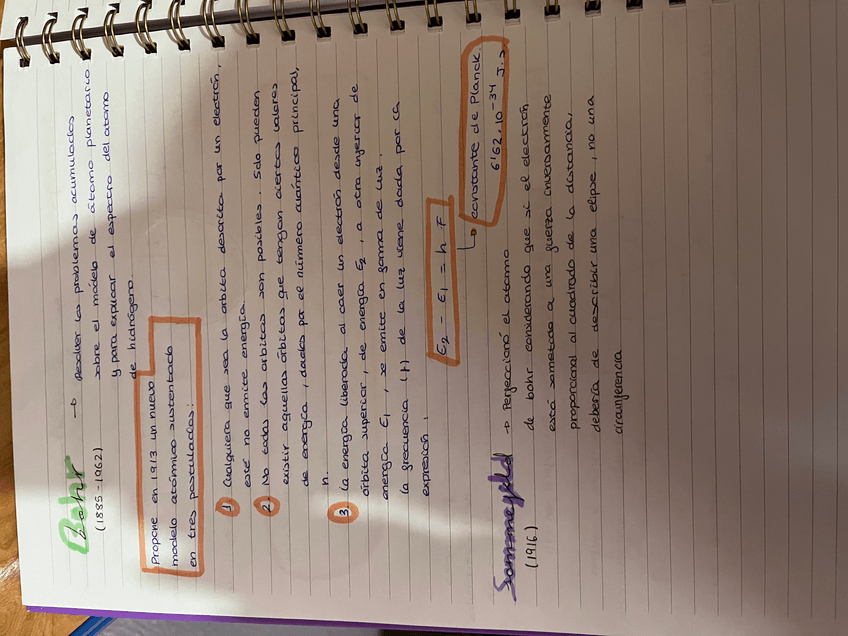 Bohr → Resolver los problemas acumulados
(1885-1962) sobre el modelo de átomo planetario
y para explicar el espectro del átomo
de hidrógeno.
Propone en 1913 un nuevo
modelo atómico sustentado
en tres postulados:
1) Cualquiera que sea la órbita descrita por un electrón,
este no emite energía.
2) No todas las órbitas son posibles. Solo pueden
existir aquellas órbitas que tengan ciertos valores
de energía, dados por el número cuántico principal,
n.
3. La energía liberada al caer un electrón desde una
órbita superior, de energía E2, a otra inferior de
energía E1, se emite en forma de luz.
la frecuencia (f) de la luz viene dada por la
expresión:
E2 - E1 = h · F
→ constante de Planck.
6'62.10-34 J.s
Sommerfeld → Perfeccionó el átomo
(1916) de bohr considerando que si el electrón
está sometido a una fuerza inversamente
proporcional al cuadrado de la distancia,
debería de describir una elipse, no una
circunferencia